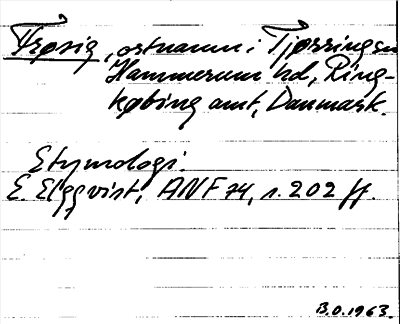 Trøsig, ortnamn i Tjørring sn
Hammerum hd, Ring-
købing amt, Danmark.
Etymologi.
E. Elgqvist, ANF 74, s. 202 ff.
B.O. 1963.